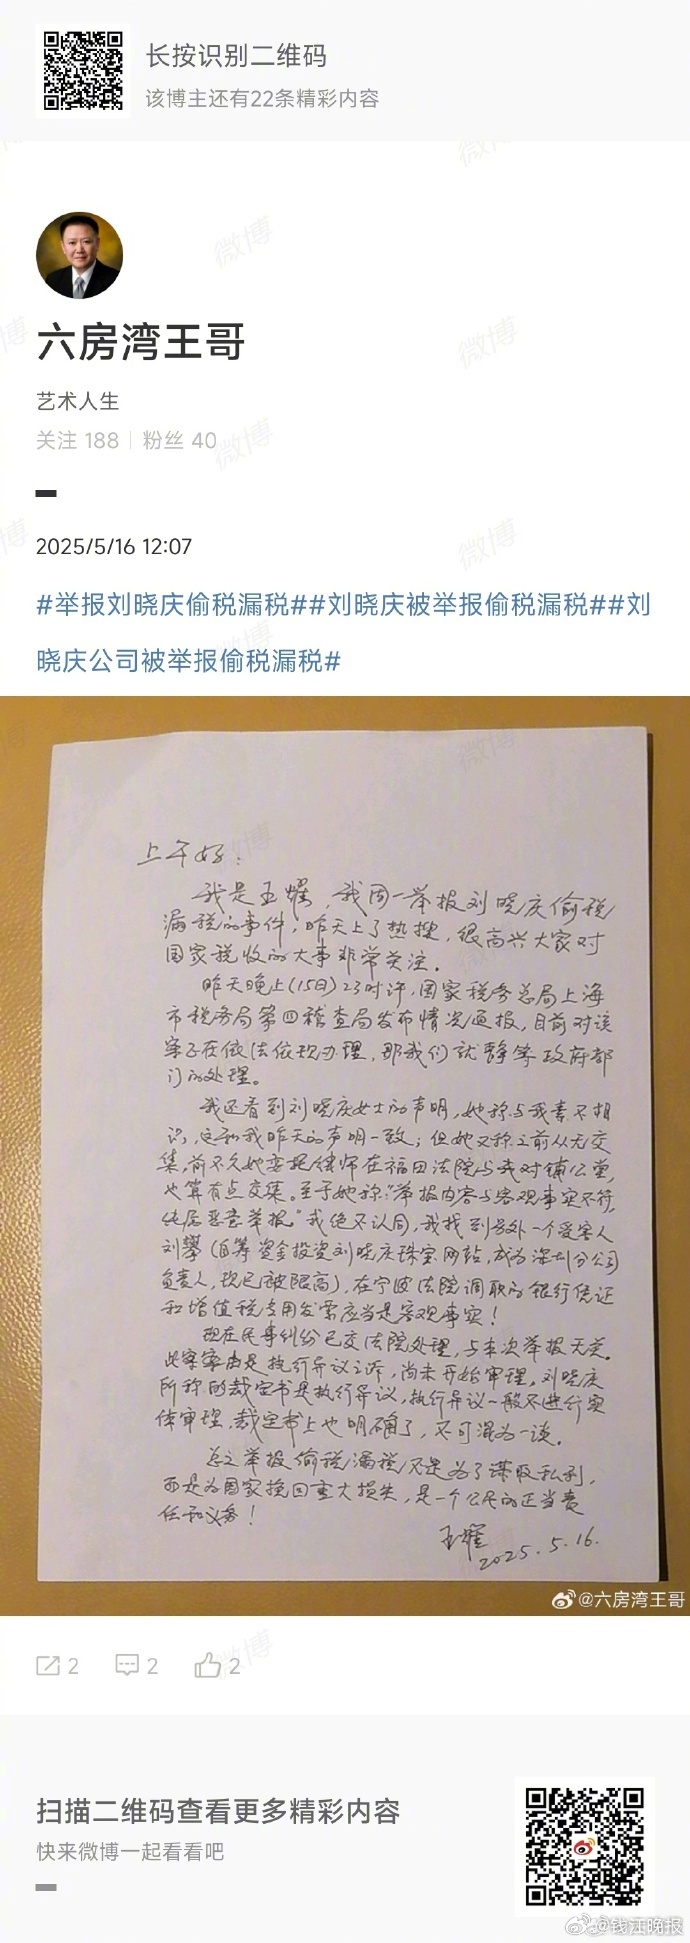 长按识别二维码
该博主还有22条精彩内容
六房湾王哥
艺术人生
关注 188 粉丝 40
2025/5/16 12:07
#举报刘晓庆偷税漏税##刘晓庆被举报偷税漏税##刘
晓庆公司被举报偷税漏税#
上午好:
我是王耀,我周一举报刘晓庆偷税
漏税的事件,昨天上了热搜,很高兴大家对
国家税收的大事非常关注。
昨天晚上(15日)23时许,国家税务总局上海
市税务局第四稽查局发布情况通报,目前对该
案子在依法依规办理,那我们就静等政府部
门的处理。
我还看到刘晓庆女士的声明,她称与我素不相
识,这和我昨天的声明一致;但她又称之前从无交
集,前不久她委托律师在福田法院与我对铺公堂,
也算有点交集。至于她称:"举报内容与客观事实不符,
纯属恶意举报。"我绝不认同,我找到另外一个受害人
刘攀(自筹资金投资刘晓庆珠宝网站,成为深圳分公司
负责人,现已被限高),在宁波法院调取的银行凭证
和增值税专用发票应当是客观事实!
现在民事纠纷已交法院处理,与本次举报无关。
此案案由是执行异议之诉,尚未开始审理。刘晓庆
所称的裁定书是执行异议,执行异议一般不进行实
体审理,裁定书上也明确了,不可混为一谈。
总之举报偷税漏税不是为了谋取私利,
而是为国家挽回重大损失,是一个公民的正当责
任和义务!
王耀
2025.5.16.
@六房湾王哥
2 2 2
扫描二维码查看更多精彩内容
快来微博一起看看吧
@钱江晚报